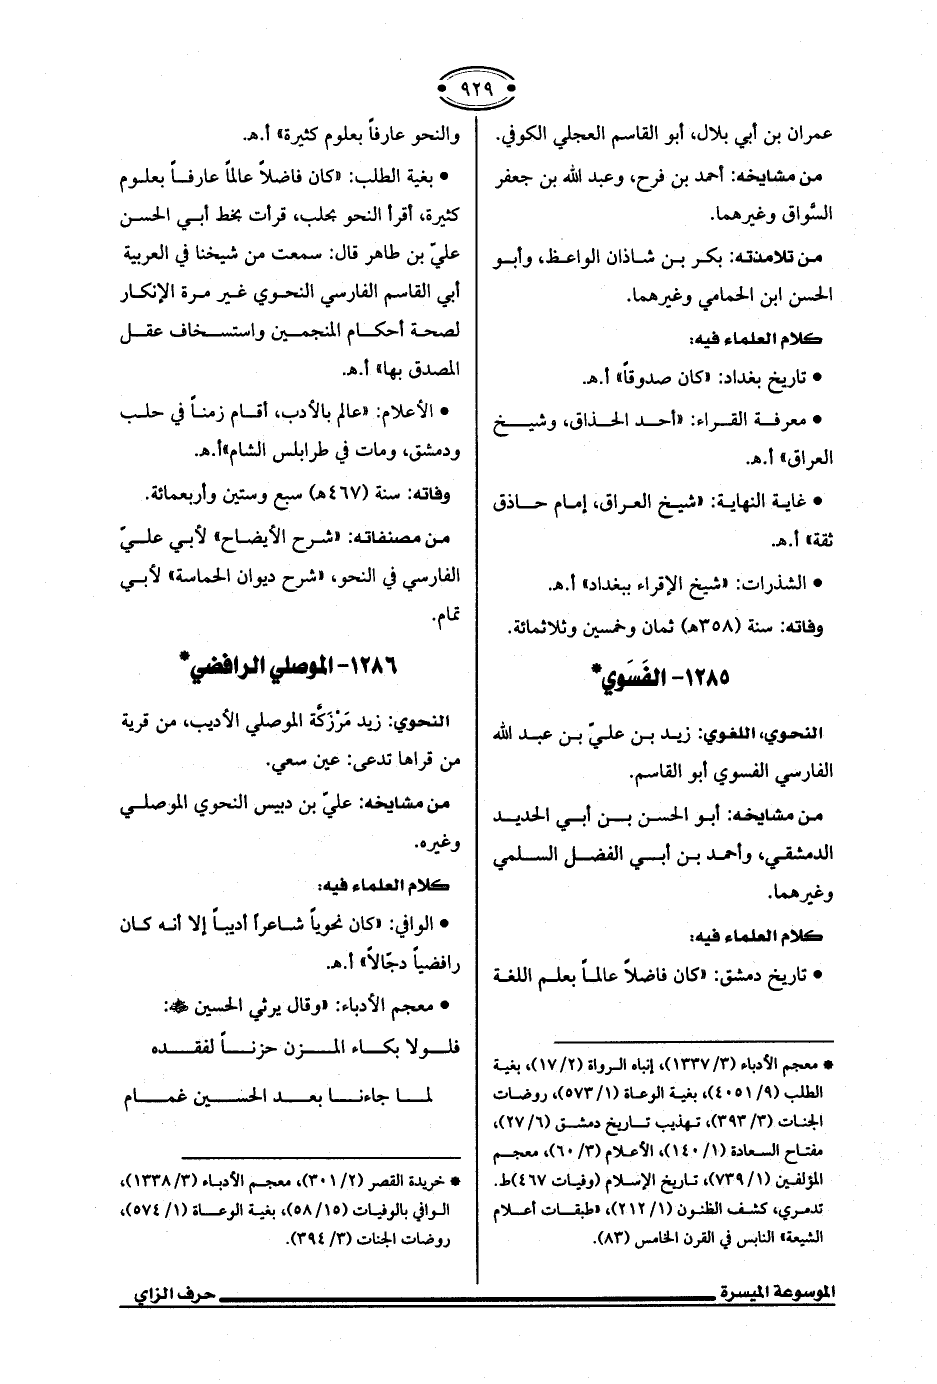 ٩٢٩
عمران بن أبي بلال، أبو القاسم العجلي الكوفي.
من مشايخه: أحمد بن فرح، وعبد الله بن جعفر
السَّواق وغيرهما.
من تلامذته: بكر بن شاذان الواعظ، وأبو
الحسن ابن الحمامي وغيرهما.
كلام العلماء فيه:
• تاريخ بغداد: «كان صدوقاً» أ.هـ.
• معرفة القراء: «أحد الحذاق، وشيخ
العراق» أ.هـ.
• غاية النهاية: «شيخ العراق، إمام حاذق
ثقة» أ.هـ.
• الشذرات: «شيخ الإقراء ببغداد» أ.هـ.
وفاته: سنة (٣٥٨هـ) ثمان وخمسين وثلاثمائة.
١٢٨٥- الفَسَوي*
النحوي، اللغوي: زيد بن عليّ بن عبد الله
الفارسي الفسوي أبو القاسم.
من مشايخه: أبو الحسن بن أبي الحديد
الدمشقي، وأحمد بن أبي الفضل السلمي
وغيرهما.
كلام العلماء فيه:
• تاريخ دمشق: «كان فاضلاً عالماً بعلم اللغة
* معجم الأدباء (٣/ ١٣٣٧)، إنباه الرواة (٢/ ١٧)، بغية
الطلب (٩/ ٤٠٥١)، بغية الوعاة (١/ ٥٧٣)، روضات
الجنات (٣/ ٣٩٣)، تهذيب تاريخ دمشق (٦/ ٢٧)،
مفتاح السعادة (١/ ١٤٠)، الأعلام (٣/ ٦٠)، معجم
المؤلفين (١/ ٧٣٩)، تاريخ الإسلام (وفيات ٤٦٧)ط.
تدمري، كشف الظنون (١/ ٢١٢)، «طبقات أعلام
الشيعة» النابس في القرن الخامس (٨٣).
والنحو عارفاً بعلوم كثيرة» أ.هـ.
• بغية الطلب: «كان فاضلاً عالماً عارفاً بعلوم
كثيرة، أقرأ النحو بحلب، قرأت بخط أبي الحسن
عليّ بن طاهر قال: سمعت من شيخنا في العربية
أبي القاسم الفارسي النحوي غير مرة الإنكار
لصحة أحكام المنجمين واستسخاف عقل
المصدق بها» أ.هـ.
• الأعلام: «عالم بالأدب، أقام زمناً في حلب
ودمشق، ومات في طرابلس الشام»أ.هـ.
وفاته: سنة (٤٦٧هـ) سبع وستين وأربعمائة.
من مصنفاته: «شرح الأيضاح» لأبي عليّ
الفارسي في النحو، «شرح ديوان الحماسة» لأبي
تمام.
١٢٨٦- الموصلي الرافضي*
النحوي: زيد مَرْزَكَّة الموصلي الأديب، من قرية
من قراها تدعى: عين سعي.
من مشايخه: عليّ بن دبيس النحوي الموصلي
وغيره.
كلام العلماء فيه:
• الوافي: «كان نحوياً شاعراً أديباً إلا أنه كان
رافضياً دجّالاً» أ.هـ.
• معجم الأدباء: «وقال يرثي الحسين ﷺ:
فلولا بكاء المزن حزناً لفقده
لما جاءنا بعد الحسين غمام
* خريدة القصر (٢/ ٣٠١)، معجم الأدباء (٣/ ١٣٣٨)،
الوافي بالوفيات (١٥/ ٥٨)، بغية الوعاة (١/ ٥٧٤)،
روضات الجنات (٣/ ٣٩٤).
الموسوعة الميسرة
حرف الزاي